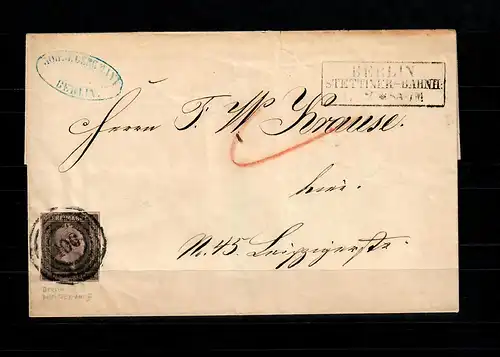 BERLIN.
BERLIN
STETTINER-BAHNH:
Herrn F. W. Krause.
hier.
No. 45. Leipzigerstr.
FREIMARKE
106